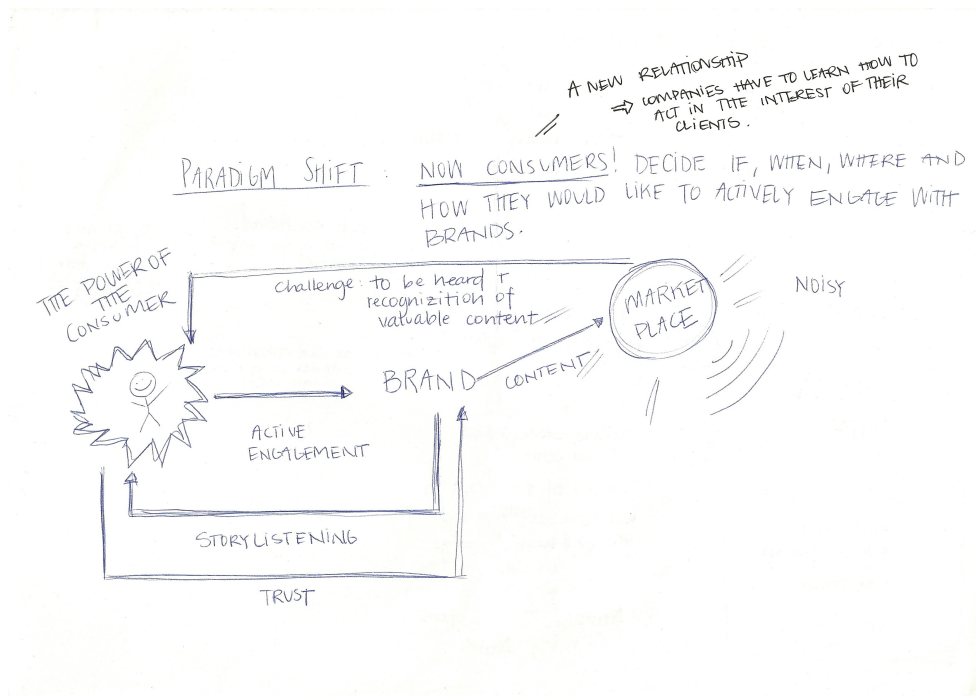 A NEW RELATIONSHIP
⇒ COMPANIES HAVE TO LEARN HOW TO
ACT IN THE INTEREST OF THEIR
CLIENTS.
PARADIGM SHIFT : NOW CONSUMERS! DECIDE IF, WHEN, WHERE AND
HOW THEY WOULD LIKE TO ACTIVELY ENGAGE WITH
BRANDS.
THE POWER OF
THE
CONSUMER
Challenge: to be heard +
recognizition of
valuable content
MARKET
PLACE
NOISY
BRAND
CONTENT
ACTIVE
ENGAGEMENT
STORYLISTENING
TRUST